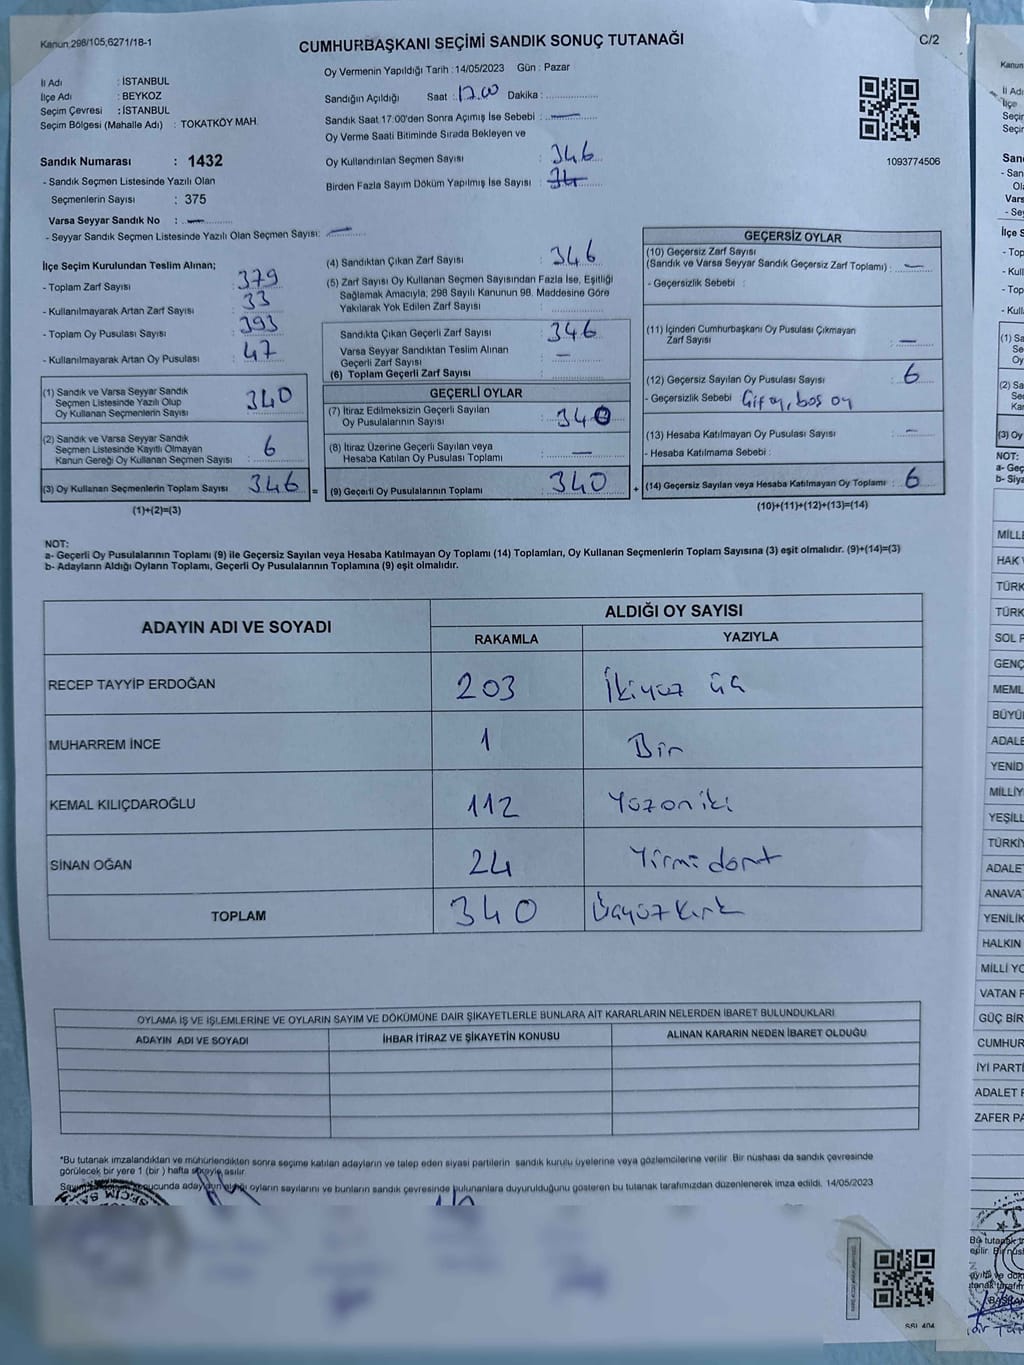 Kanun:298/105,6271/18-1
CUMHURBAŞKANI SEÇİMİ SANDIK SONUÇ TUTANAĞI
C/2
İl Adı : İSTANBUL
İlçe Adı : BEYKOZ
Seçim Çevresi : İSTANBUL
Seçim Bölgesi (Mahalle Adı) : TOKATKÖY MAH.
Oy Vermenin Yapıldığı Tarih : 14/05/2023 Gün : Pazar
Sandığın Açıldığı Saat : 17.00 Dakika :
Sandık Saat 17:00'den Sonra Açımış İse Sebebi : —
Oy Verme Saati Bitiminde Sırada Bekleyen ve
Oy Kullandırılan Seçmen Sayısı : 346
Birden Fazla Sayım Döküm Yapılmış İse Sayısı :
1093774506
Sandık Numarası : 1432
- Sandık Seçmen Listesinde Yazılı Olan
Seçmenlerin Sayısı : 375
Varsa Seyyar Sandık No : —
- Seyyar Sandık Seçmen Listesinde Yazılı Olan Seçmen Sayısı: —
İlçe Seçim Kurulundan Teslim Alınan;
- Toplam Zarf Sayısı : 379
- Kullanılmayarak Artan Zarf Sayısı : 33
- Toplam Oy Pusulası Sayısı : 393
- Kullanılmayarak Artan Oy Pusulası : 47
(1) Sandık ve Varsa Seyyar Sandık
Seçmen Listesinde Yazılı Olup
Oy Kullanan Seçmenlerin Sayısı : 340
(2) Sandık ve Varsa Seyyar Sandık
Seçmen Listesinde Kayıtlı Olmayan
Kanun Gereği Oy Kullanan Seçmen Sayısı : 6
(3) Oy Kullanan Seçmenlerin Toplam Sayısı : 346 =
(1)+(2)=(3)
(4) Sandıktan Çıkan Zarf Sayısı : 346
(5) Zarf Sayısı Oy Kullanan Seçmen Sayısından Fazla İse, Eşitliği
Sağlamak Amacıyla; 298 Sayılı Kanunun 98. Maddesine Göre
Yakılarak Yok Edilen Zarf Sayısı :
Sandıkta Çıkan Geçerli Zarf Sayısı : 346
Varsa Seyyar Sandıktan Teslim Alınan
Geçerli Zarf Sayısı : —
(6) Toplam Geçerli Zarf Sayısı :
GEÇERLİ OYLAR
(7) İtiraz Edilmeksizin Geçerli Sayılan
Oy Pusulalarının Sayısı : 340
(8) İtiraz Üzerine Geçerli Sayılan veya
Hesaba Katılan Oy Pusulası Toplamı : —
(9) Geçerli Oy Pusulalarının Toplamı : 340 +
GEÇERSİZ OYLAR
(10) Geçersiz Zarf Sayısı
(Sandık ve Varsa Seyyar Sandık Geçersiz Zarf Toplamı) : —
- Geçersizlik Sebebi :
(11) İçinden Cumhurbaşkanı Oy Pusulası Çıkmayan
Zarf Sayısı : —
(12) Geçersiz Sayılan Oy Pusulası Sayısı : 6
- Geçersizlik Sebebi : Çift oy, boş oy
(13) Hesaba Katılmayan Oy Pusulası Sayısı : —
- Hesaba Katılmama Sebebi :
(14) Geçersiz Sayılan veya Hesaba Katılmayan Oy Toplamı : 6
(10)+(11)+(12)+(13)=(14)
NOT:
a- Geçerli Oy Pusulalarının Toplamı (9) ile Geçersiz Sayılan veya Hesaba Katılmayan Oy Toplamı (14) Toplamları, Oy Kullanan Seçmenlerin Toplam Sayısına (3) eşit olmalıdır. (9)+(14)=(3)
b- Adayların Aldığı Oyların Toplamı, Geçerli Oy Pusulalarının Toplamına (9) eşit olmalıdır.
ADAYIN ADI VE SOYADI
ALDIĞI OY SAYISI
RAKAMLA YAZIYLA
RECEP TAYYİP ERDOĞAN 203 İkiyüz üç
MUHARREM İNCE 1 Bir
KEMAL KILIÇDAROĞLU 112 Yüzoniki
SİNAN OĞAN 24 Yirmi dört
TOPLAM 340 Üçyüz kırk
OYLAMA İŞ VE İŞLEMLERİNE VE OYLARIN SAYIM VE DÖKÜMÜNE DAİR ŞİKAYETLERLE BUNLARA AİT KARARLARIN NELERDEN İBARET BULUNDUKLARI
ADAYIN ADI VE SOYADI İHBAR İTİRAZ VE ŞİKAYETİN KONUSU ALINAN KARARIN NEDEN İBARET OLDUĞU
*Bu tutanak imzalandıktan ve mühürlendikten sonra seçime katılan adayların ve talep eden siyasi partilerin sandık kurulu üyelerine veya gözlemcilerine verilir. Bir nüshası da sandık çevresinde
görülecek bir yere 1 (bir ) hafta süreyle asılır.
oyların sayılarını ve bunların sandık çevresinde bulunanlara duyurulduğunu gösteren bu tutanak tarafımızdan düzenlenerek imza edildi. 14/05/2023
Kanun
İl Adı
İlçe
MİLLE
HAK
TÜRK
TÜRK
SOL P
GENÇ
MEML
BÜYÜ
ADALE
YENİD
MİLLİY
YEŞİLL
TÜRKİY
ADALE
ANAVA
YENİLİK
HALKIN
MİLLİ YO
VATAN P
GÜÇ BİR
CUMHUR
İYİ PARTİ
ADALET P
ZAFER PA